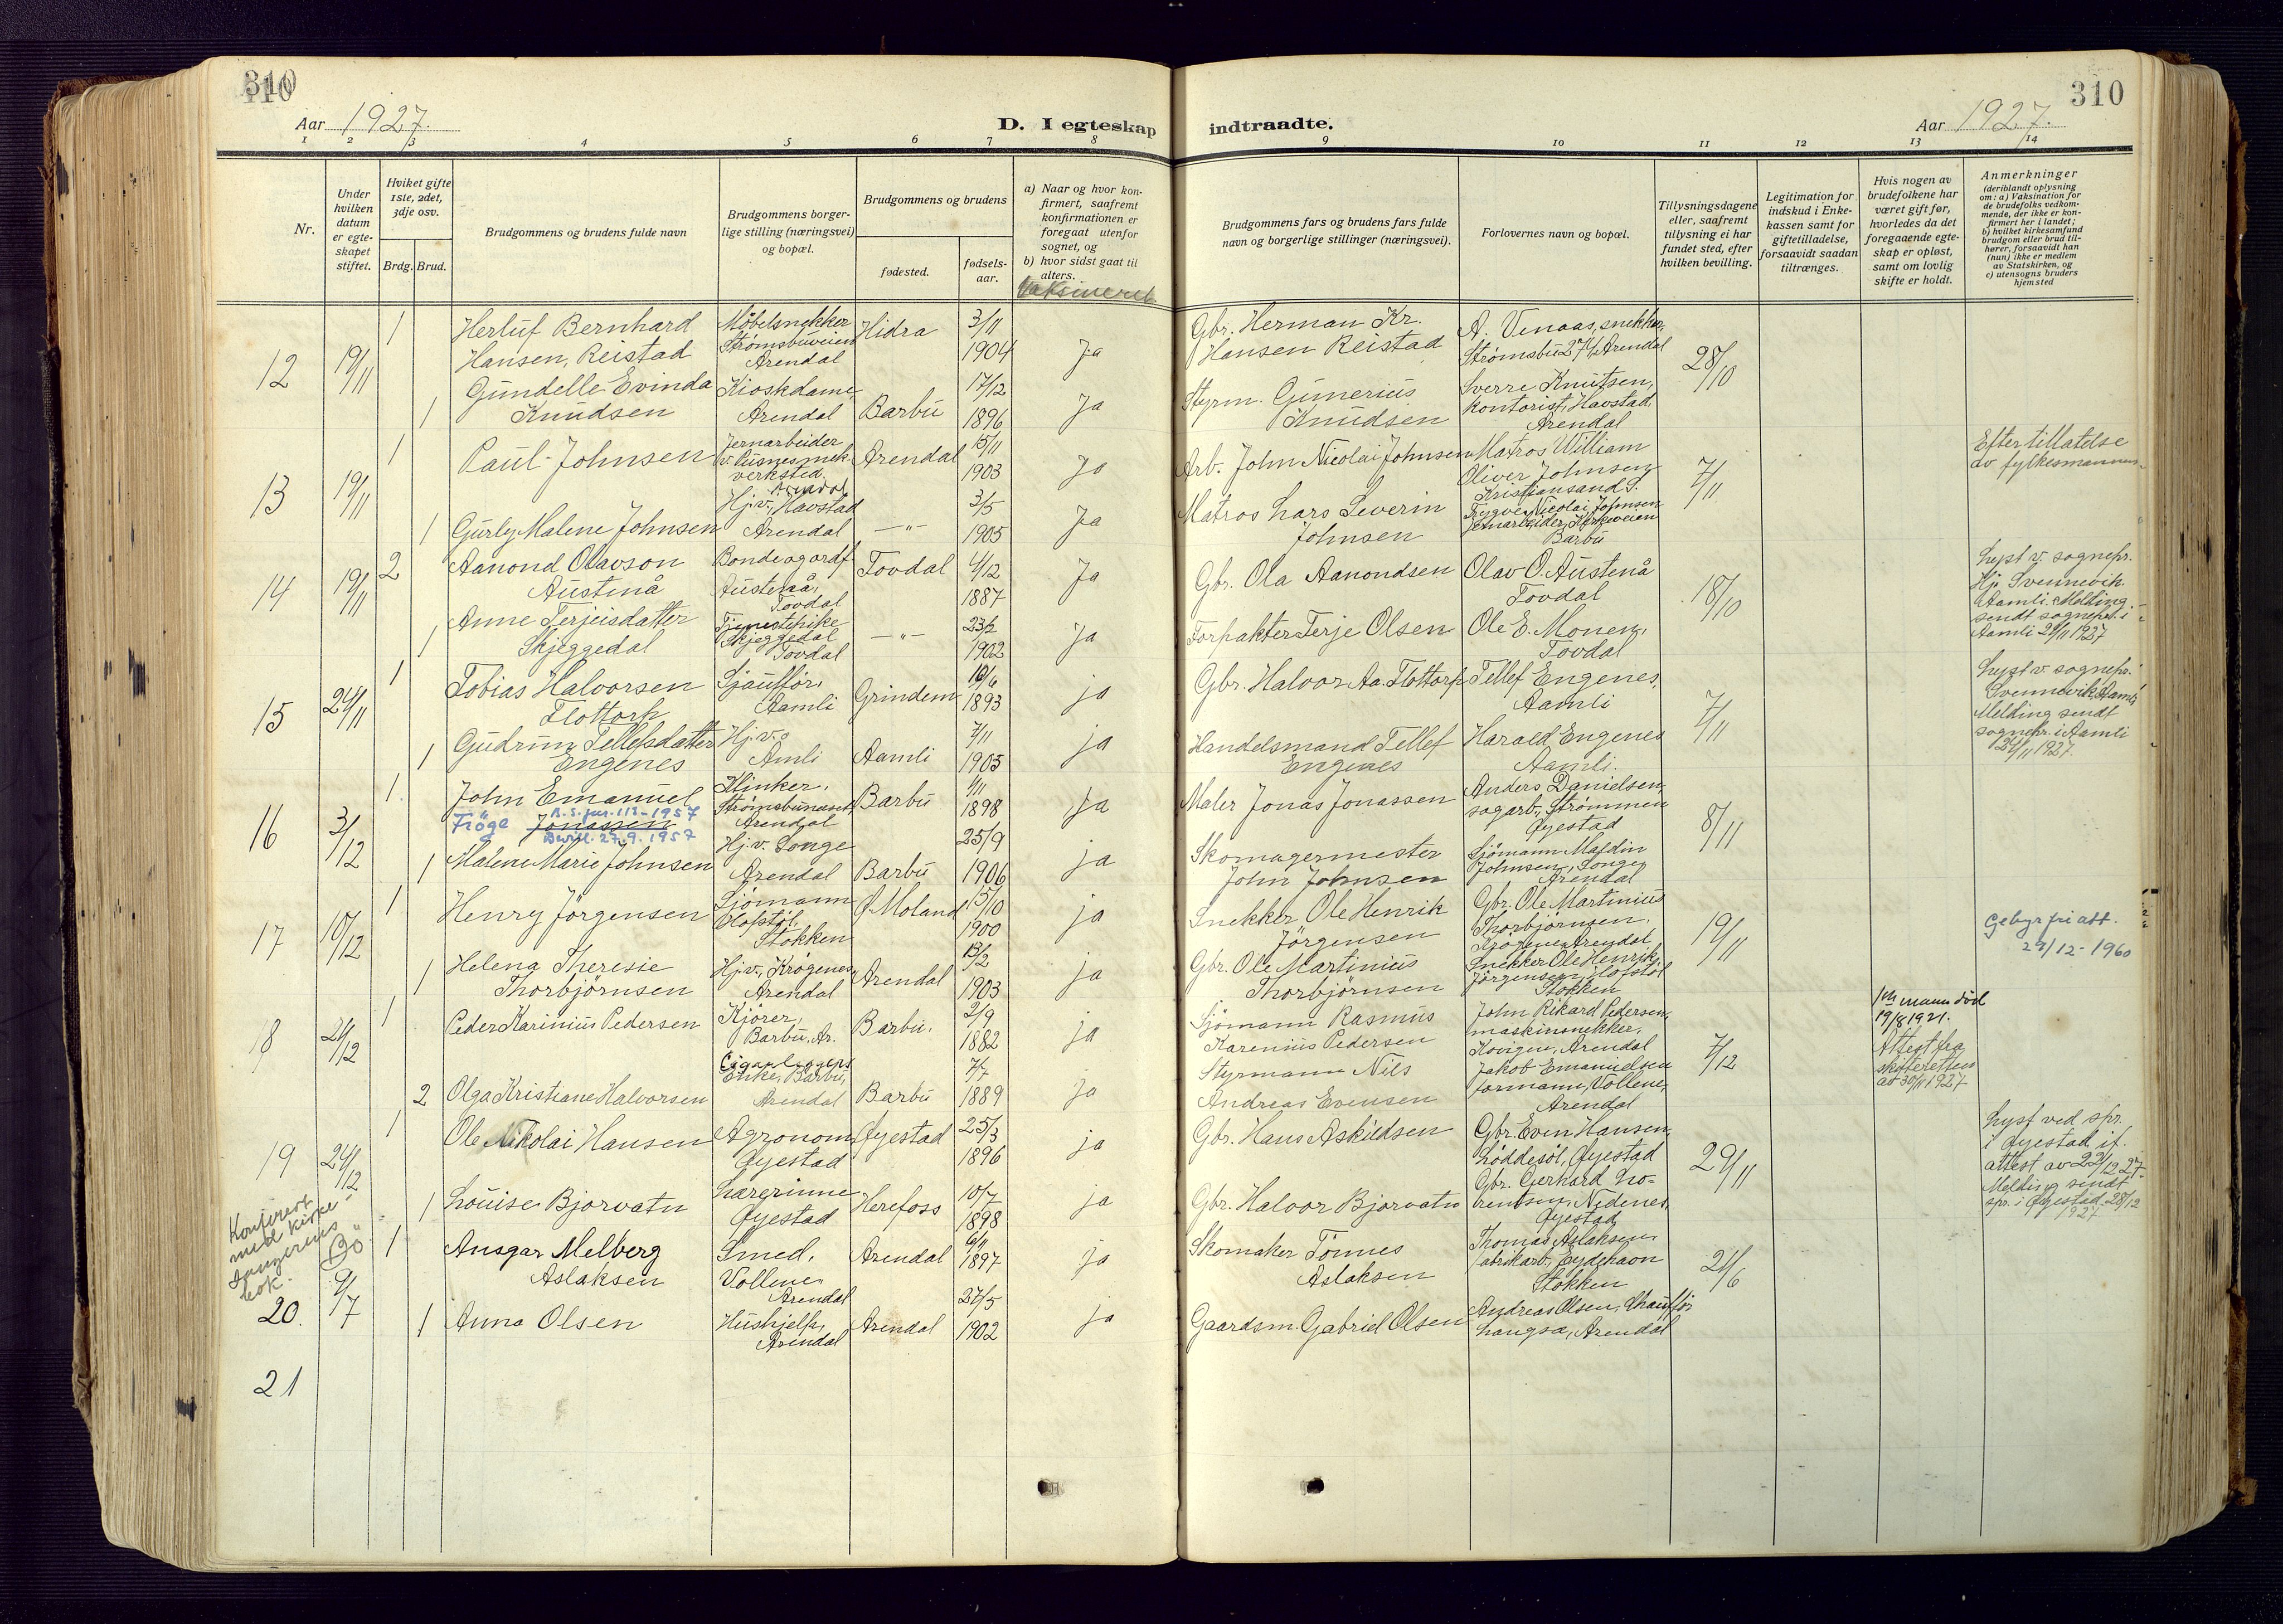 310
310
Aar 1927.
D. I egteskap indtraadte.
Aar 1927.
1 2 3 4 5 6 7 8 9 10 11 12 13 14
Nr.
Under hvilken datum er egteskapet stiftet.
Hvilket gifte 1ste, 2det, 3dje osv.
Brdg. Brud.
Brudgommens og brudens fulde navn
Brudgommens borgerlige stilling (næringsvei) og bopæl.
Brudgommens og brudens
fødested.
fødselsaar.
a) Naar og hvor konfirmert, saafremt konfirmationen er foregaat utenfor sognet, og
b) hvor sidst gaat til alters.
Vaksineret
Brudgommens fars og brudens fars fulde navn og borgerlige stillinger (næringsvei).
Forlovernes navn og bopæl.
Tillysningsdagene eller, saafremt tillysning ei har fundet sted, efter hvilken bevilling.
Legitimation for indskud i Enkekassen samt for giftetilladelse, forsaavidt saadan tiltrænges.
Hvis nogen av brudefolkene har været gift før, hvorledes da det foregaaende egteskap er opløst, samt om lovlig skifte er holdt.
Anmerkninger
(deriblandt oplysning om: a) Vaksination for de brudefolks vedkommende, der ikke er konfirmert her i landet;
b) hvilket kirkesamfund brudgom eller brud tilhører, forsaavidt han (hun) ikke er medlem av Statskirken, og
c) utensogns bruders hjemsted
12 19/11
1 Herluf Bernhard Hansen, Reistad Møbelsnekker Strømsbuveien Arendal Hidra 3/11 1904 Ja Gbr. Herman Kr. Hansen Reistad A. Venaas, snekker, Strømsbu Arendal 28/10
1 Gundelle Evinda Knudsen Kioskdame, Arendal Barbu 17/12 1896 Ja Styrm. Gumerius Knudsen Sverre Knutsen, kontorist, Havstad, Arendal
13 19/11
1 Paul Johnsen Jernarbeider v. Pusnes mek. verksted. Arendal Arendal 15/11 1903 Ja Arb. John Nicolai Johnsen Matros William Oliver Johnsen Kristiansand S. 7/11 Efter tillatelse av fylkesmannen
1 Gurly Malene Johnsen Hj.v., Havstad Arendal —"— 3/5 1905 Ja Matros Lars Severin Johnsen Trygve Nicolai Johnsen Jernarbeider, Kirkeveien Barbu
14 19/11
2 Aanond Olavson Austenå Bonde og ordf. Austenå, Tovdal Tovdal 4/12 1887 Ja Gbr. Ola Aanondsen Olav O. Austenå Tovdal 18/10 Lyst v. sognepr. Hj. Svennevik. Aamli. Melding sendt sognepr. i Aamli 21/11 1927
1 Anne Terjeisdatter Skjeggedal Tjenestepike Skjeggedal Tovdal —"— 23/2 1902 Ja Forpakter Terje Olsen Ole E. Monen, Tovdal
15 24/11
1 Tobias Halvorsen Flottorp Sjauffør, Aamli Grindem 1893 ja Gbr. Halvor Aa. Flottorp Tellef Engenes, Aamli 7/11 Lyst v. sognepr. Svennevik, Aamli Melding sendt sognepr. i Aamli 24/11 1927.
1 Gudrun Tellefsdatter Engenes Hj.v. Amli Aamli 7/11 1905 ja Handelsmand Tellef Engenes Harald Engenes Aamli.
16 3/12
1 John Emanuel Jonassen Frøge 1957 Bevill. 27.9.1957 Klinker, Strømsbuneset Arendal Barbu 1/11 1898 Ja Maler Jonas Jonassen Anders Danielsen, sagarb., Strømmen Øyestad 8/11
1 Malene Marie Johnsen Hj.v. Songe Arendal Barbu 25/9 1906 ja Skomagermester John Johnsen Sjømann Maldin Johnsen, Songe, Arendal
17 10/12
1 Henry Jørgensen Sjømann Olofstøl, Stokken Ø. Moland 15/10 1900 ja Snekker Ole Henrik Jørgensen Gbr. Ole Martinius Thorbjørnsen, Krøgenes Arendal 19/11 Gebyrfri att. 29/12-1960
1 Helena Theresie Thorbjørnsen Hj.v., Krøgenes, Arendal Arendal 13/2 1903 ja Gbr. Ole Martinius Thorbjørnsen Snekker Ole Henrik Jørgensen, Olofstøl Stokken
18 24/12
1 Peder Karinius Pedersen Kjører, Barbu, Ar. Barbu. 2/9 1882 ja Sjømann Rasmus Karenius Pedersen John Rikard Pedersen, maskinsnekker, Kovigen, Arendal 7/12
2 Olga Kristiane Halvorsen Enke, Barbu, Arendal Barbu 7/7 1889 Ja Styrmann Nils Andreas Evensen Jakob Emanuelsen formann, Vollene, Arendal 1ste mann død 19/8 1921. Attest fra skifteretten av 30/11 1927
19 24/12
1 Ole Nikolai Hansen Agronom Øyestad Øyestad 25/3 1896 ja Gbr. Hans Askildsen Gbr. Even Hansen, Løddesøl, Øyestad 29/11 Lyst ved spr. i Øyestad if. attest av 23/12 27. Melding sendt spr. i Øyestad 28/12 1927
1 Louise Bjorvatn Lærerinne Øyestad Herefoss 10/7 1898 ja Gbr. Halvor Bjorvatn Gbr. Gerhard Lorentsen, Nedenes, Øyestad
Konferert med kirkesangerens bok. BØ
20. 9/7
1 Ansgar Melberg Aslaksen Smed, Vollene, Arendal Arendal 6/11 1897 ja Skomaker Tønnes Aslaksen Thomas Aslaksen, fabrikarb., Eydehavn Stokken 21/6
1 Anna Olsen Hushjelp, Arendal Arendal 27/5 1902 ja Gaardsm. Gabriel Olsen Andreas Olsen, Chauffør Langsæ, Arendal
21